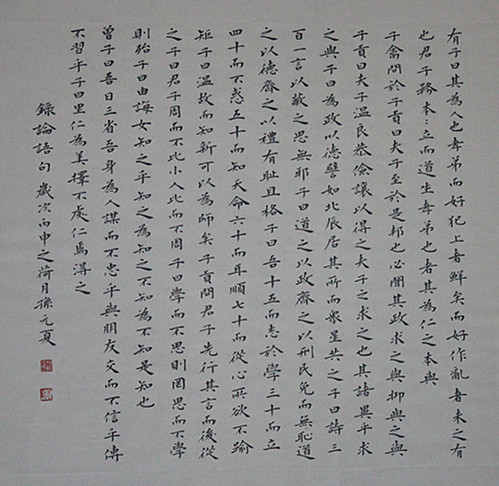 有子曰其為人也孝弟而好犯上者鮮矣而好作亂者未之有
也君子務本〻立而道生孝弟也者其為仁之本與
子禽問於子貢曰夫子至於是邦也必聞其政求之與抑與之與
子貢曰夫子溫良恭儉讓以得之夫子之求之也其諸異乎求
之與子曰為政以德譬如北辰居其所而眾星共之子曰詩三
百一言以蔽之思無邪子曰道之以政齊之以刑民免而無恥道
之以德齊之以禮有耻且格子曰吾十五而志於學三十而立
四十而不惑五十而知天命六十而耳順七十而從心所欲不踰
矩子曰溫故而知新可以為師矣子貢問君子先行其言而後從
之子曰君子周而不比小人比而不周子曰學而不思則罔思而不學
則殆子曰由誨女知之乎知之為知之不知為不知是知也
曾子曰吾日三省吾身為人謀而不忠乎與朋友交而不信乎傳
不習乎子曰里仁為美擇不處仁焉得之
錄論語句歲次丙申之荷月孫元夏